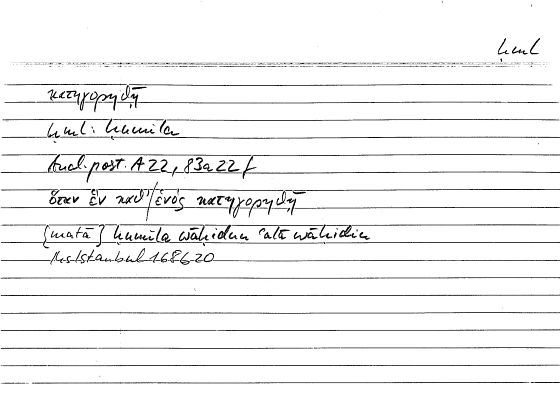 ḥml
κατηγορηθῇ
ḥml: ḥumila
Anal. post. A 22, 83a22 f
ὅταν ἓν καθ' / ἑνὸς κατηγορηθῇ
{matā} ḥumila wāḥidun ʿalā wāḥidin
Ms Istanbul 168b20